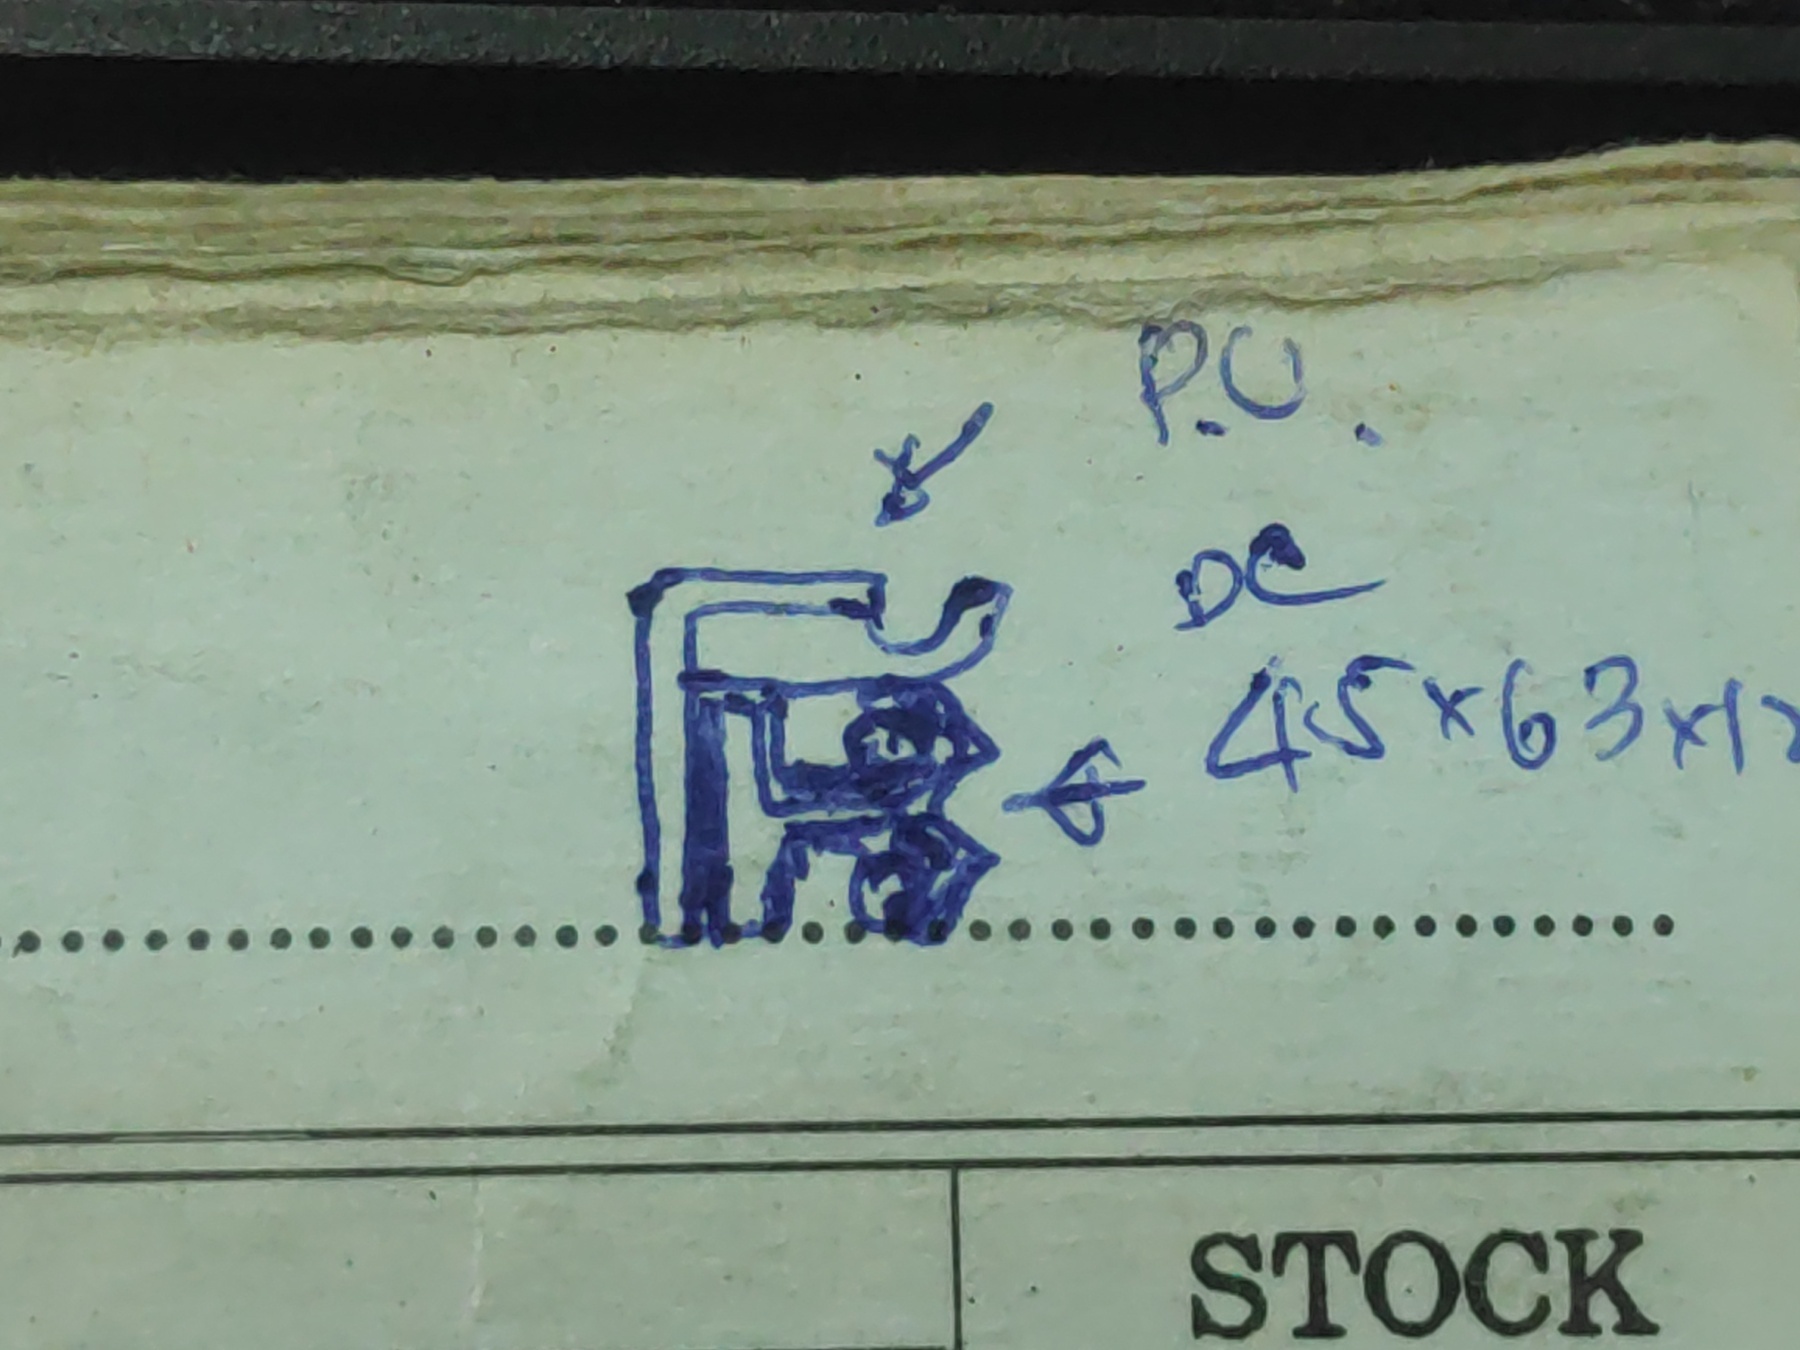 P.U.
DC
45x63x12
STOCK